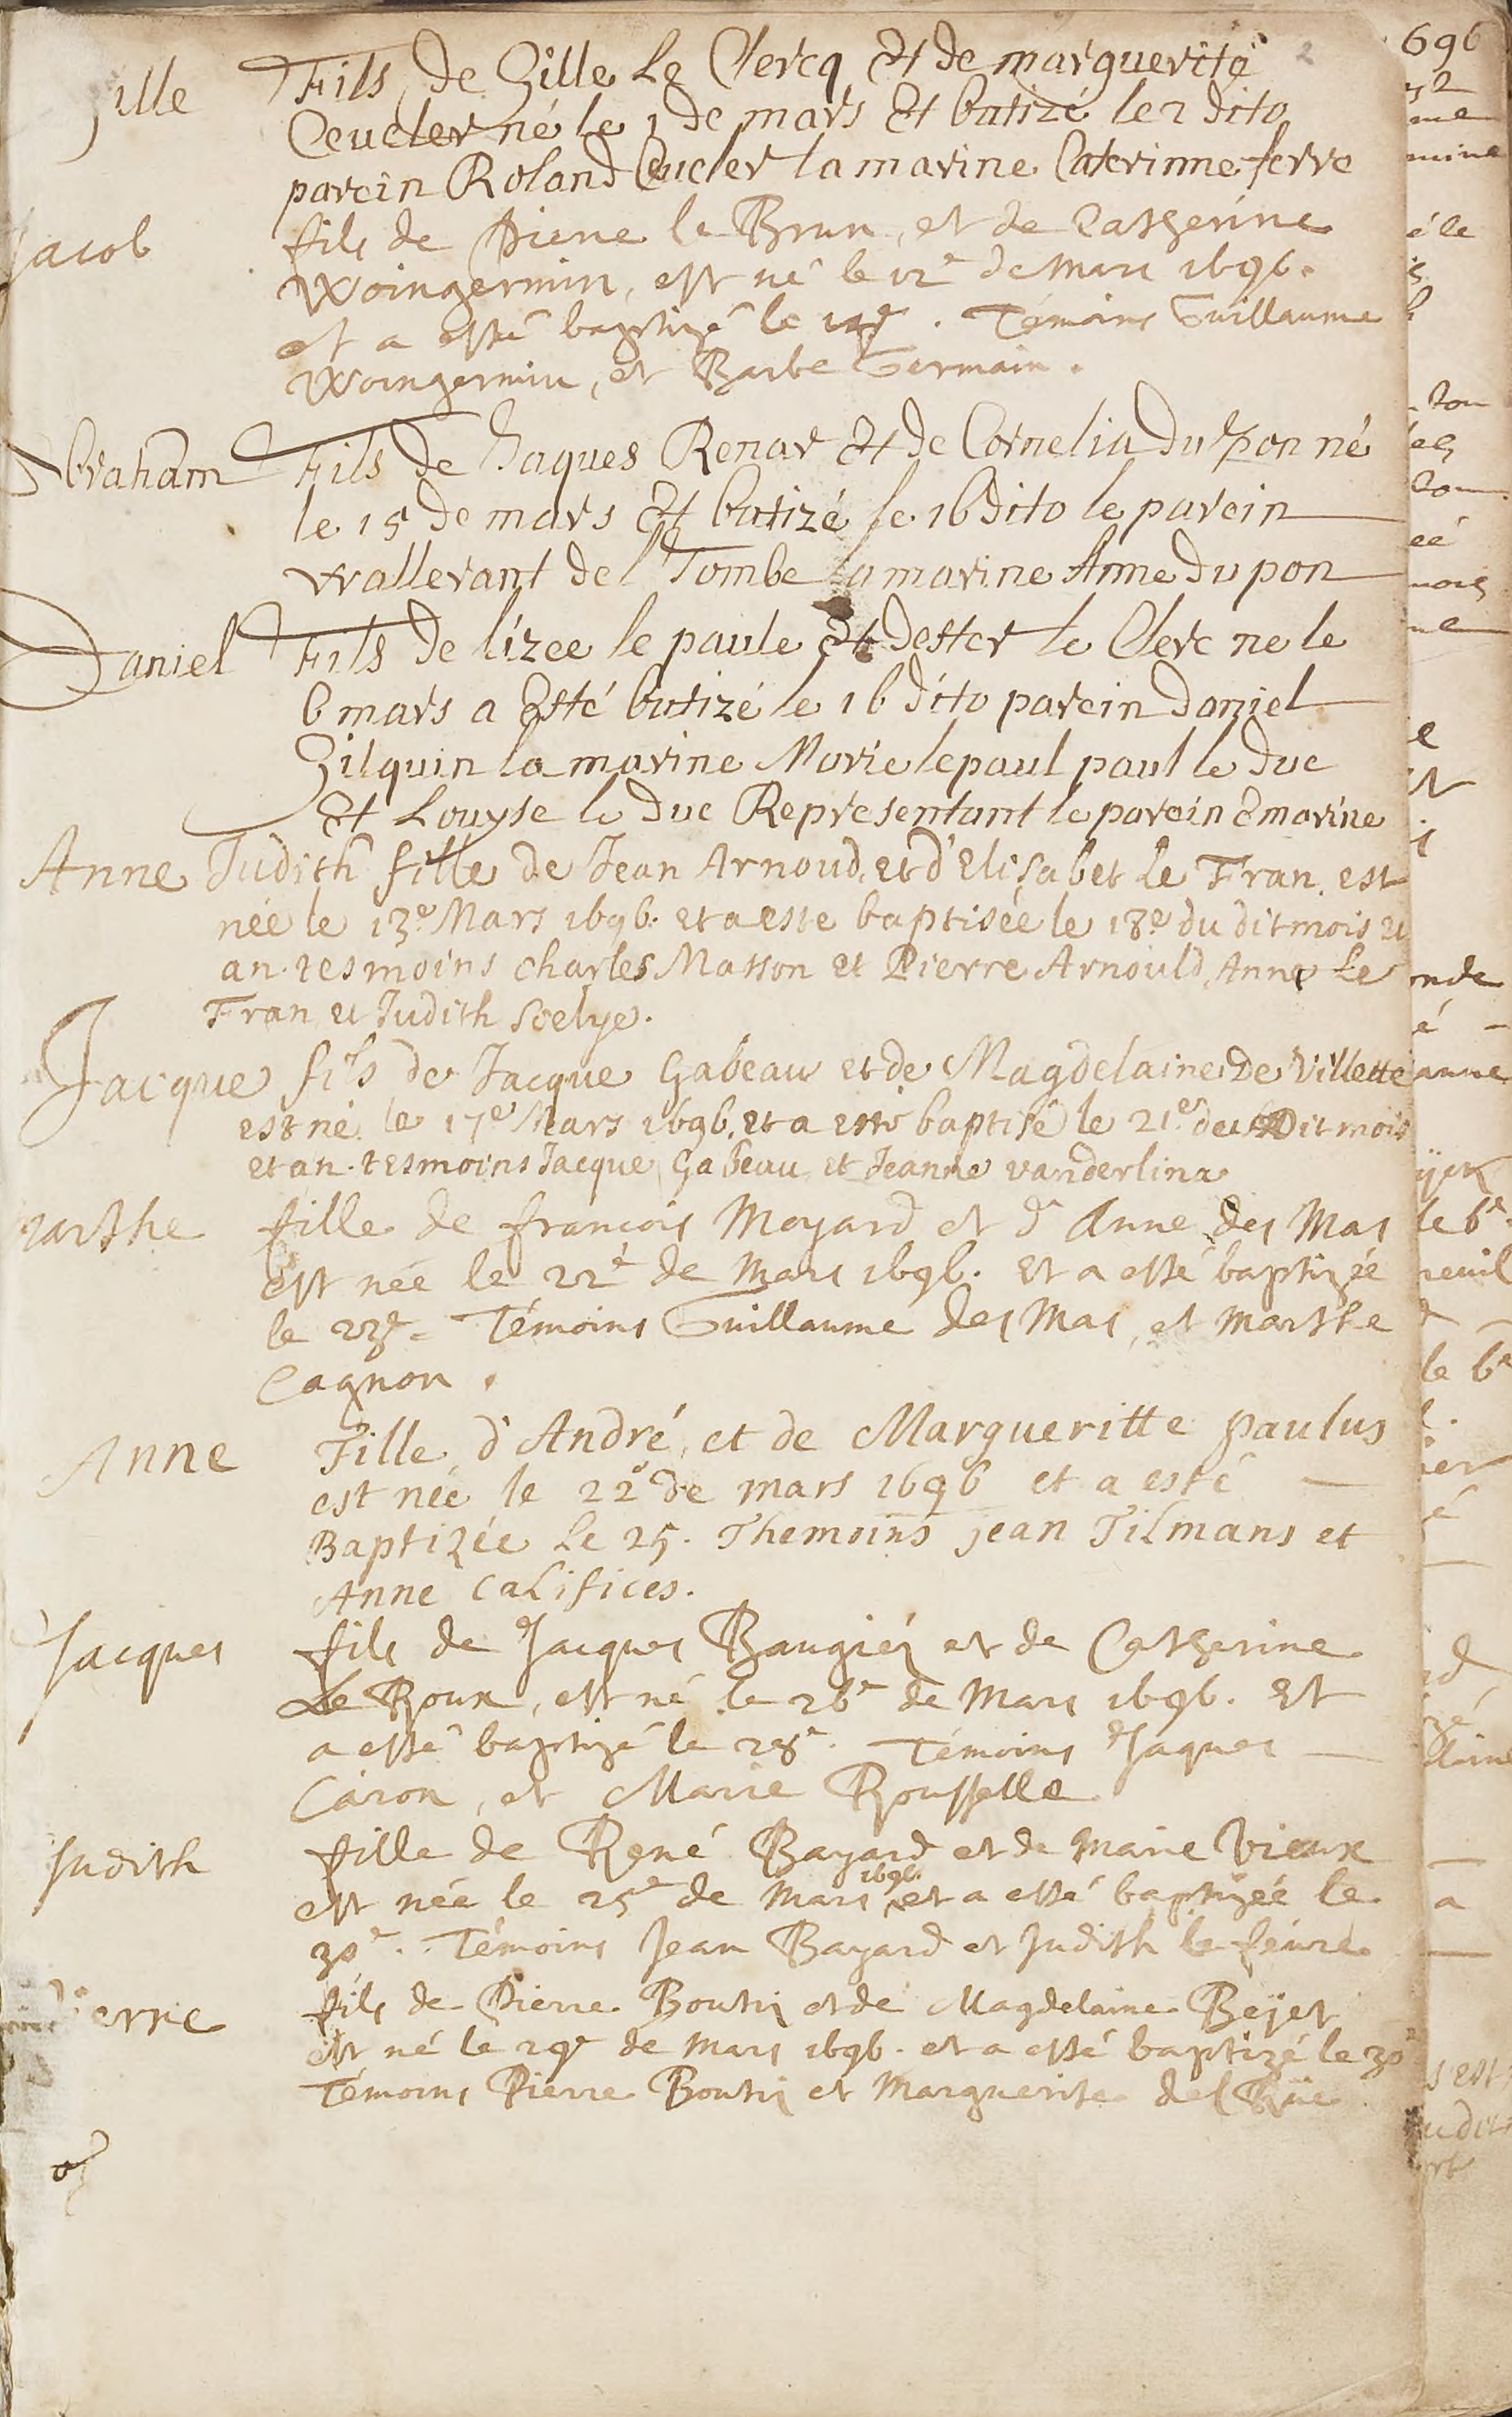 Gille Fils de Gille Le Clercq et de marguerite
Ceucler né le 1 de mars et batizé le 2 dito
parein Roland Ceucler la marine Caterinne ferre
Jacob fils de Pierre le Brun, et de Catherine
Woingermin, est né le 12e de Mars 1696.
et a esté baptizé le . Témoins Guillaume
Woingermin, et Barbe Germain.
Abraham Fils de Jaques Renar et de Cornelia Du pon né
le 15 de mars et batizé le 16 dito le parein
wallerant del Tombe la marine Anne Du pon
Daniel Fils de lizee le paule et dester le Clerc ne le
6 mars a Esté batizé le 16 dito parein daniel
Gilquin la marine Marie lepaul paul le duc
et Louyse le duc Representant le parein & marine
Anne Judith fille de Jean Arnoud, et d'Elisabet Le Fran. est
née le 13e Mars 1696. et a este baptisée le 18e du dit mois et
an. tesmoins Charles Masson et Pierre Arnould, Anne Le
Fran et Judith Soelye.
Jacque fils de Jacque Gabeau et de Magdelaine De Villette
est né le 17e Mars 1696. et a esté baptisé le 21e du Dit mois
et an. tesmoins Jacque Gabeau et Jeanne vanderlina
Marthe fille de francois Moyard et d'Anne des Mas
est née le 22e de Mars 1696. Et a esté baptizée
le 23e. Témoins Guillaume des Mas, et Marthe
Cagnon.
Anne Fille d'André, et de Margueritte paulus
est née le 22e de mars 1696 et a esté
Baptizée Le 25. Themoins jean Tilmans et
Anne Califices.
Jacques fils de Jacques Baugiéz et de Catherine
Le Roux, est né le 26e de Mars 1696. Et
a esté baptizé le 28e. Témoins Jaques
Caron, et Marie Rousselle
Judith fille de René Bayard et de Marie Vieux
est née le 25e de Mars 1696. et a esté baptizée le
30e. Témoins Jean Bayard et Judith le feure.
Pierre fils de Pierre Boutry et de Magdelaine Bejet
est né le 29e de Mars 1696. et a esté baptizé le 30e
Témoins Pierre Boutry et Marguerite del Rüe